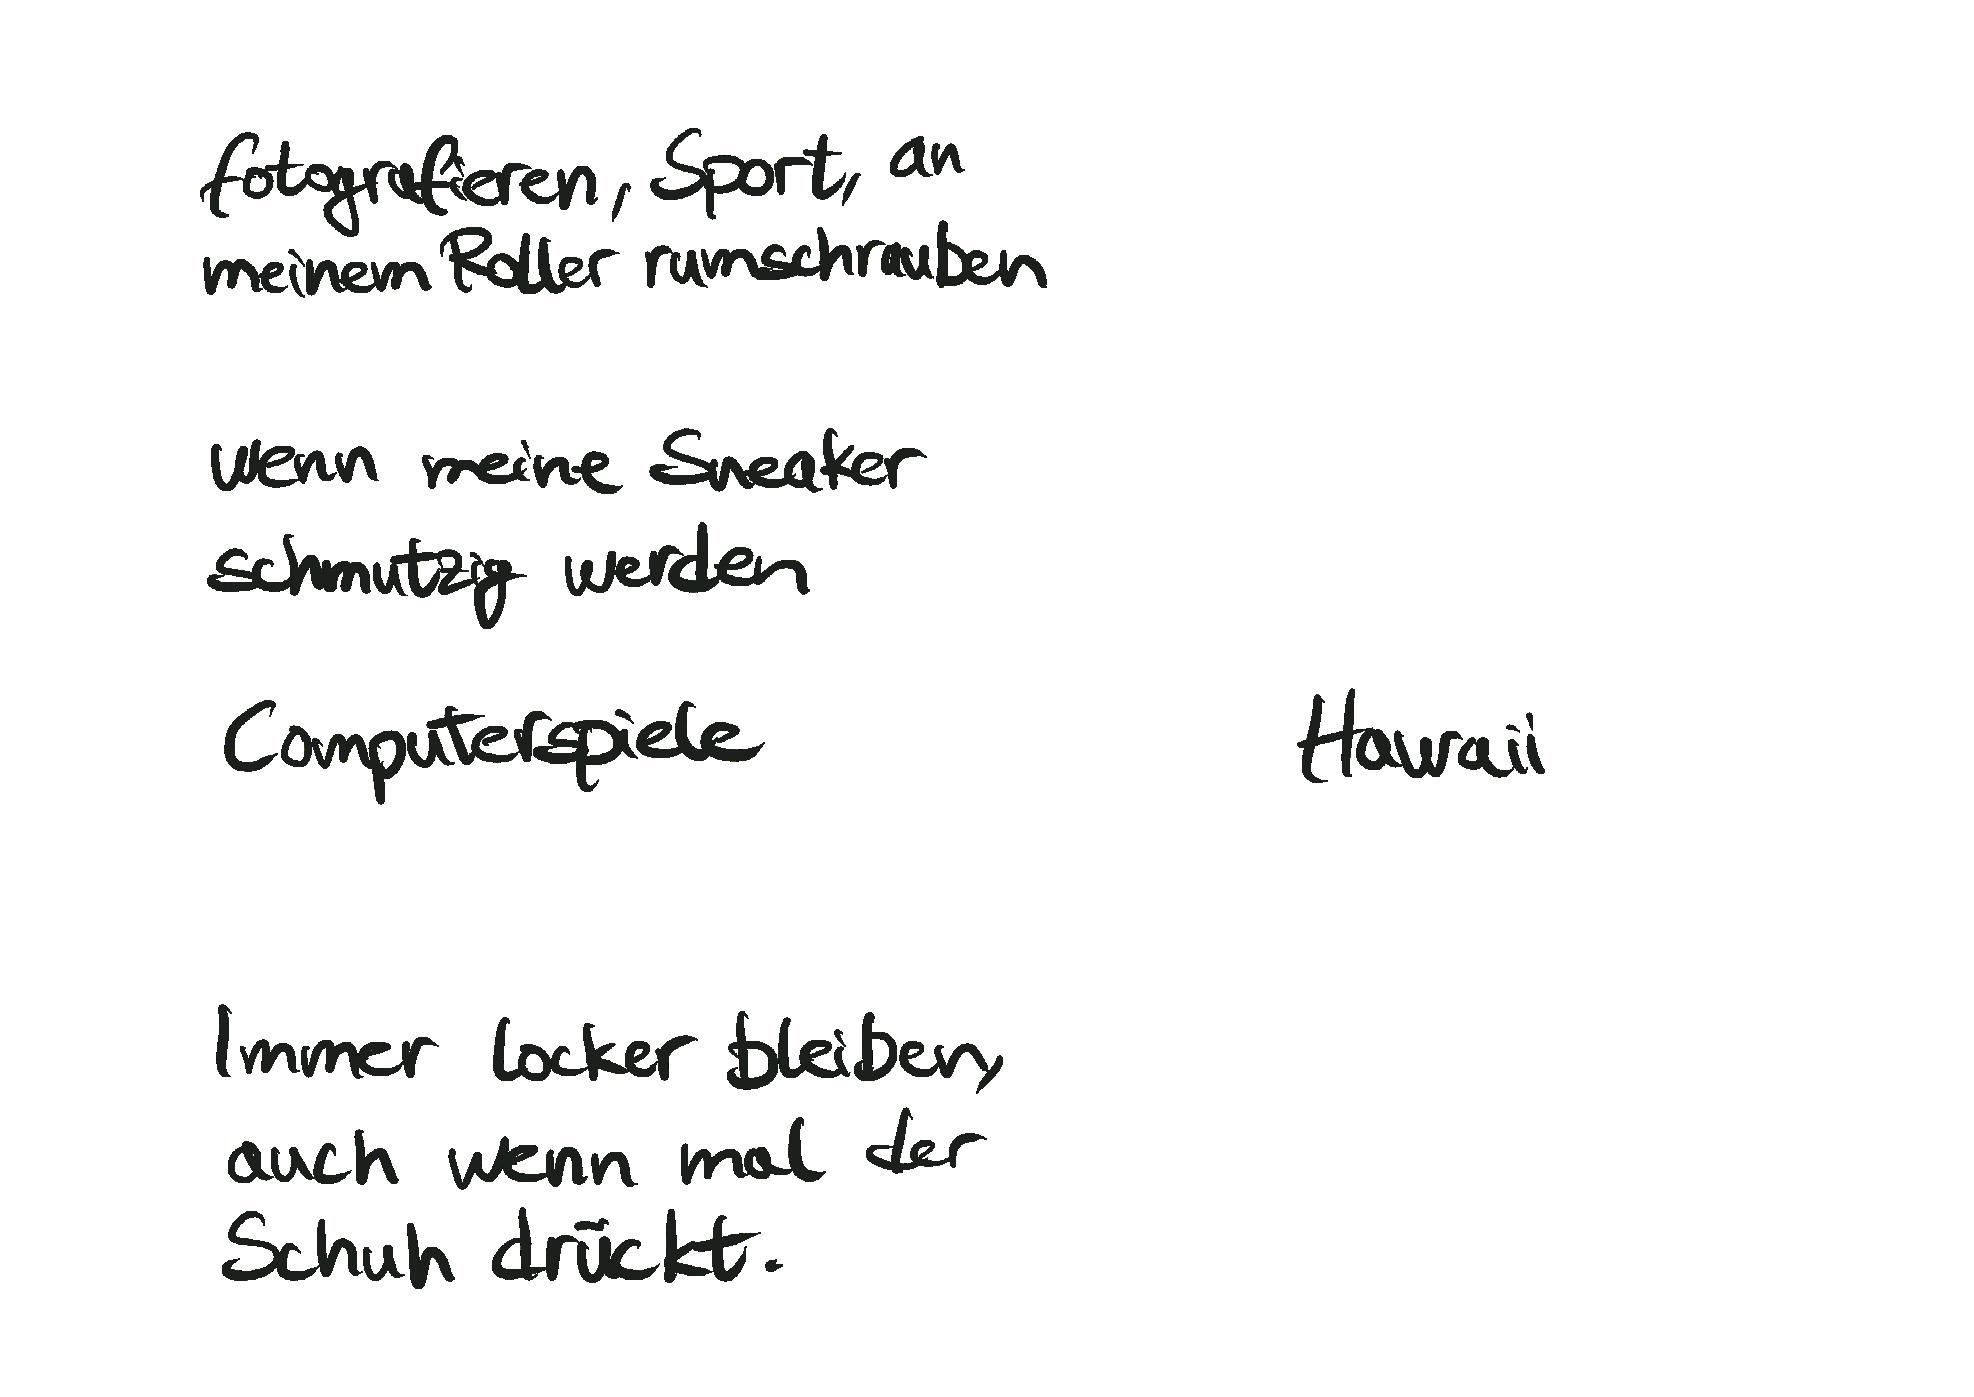 fotografieren, Sport, an
meinem Roller rumschrauben
wenn meine Sneaker
schmutzig werden
Computerspiele
Hawaii
Immer locker bleiben,
auch wenn mal der
Schuh drückt.